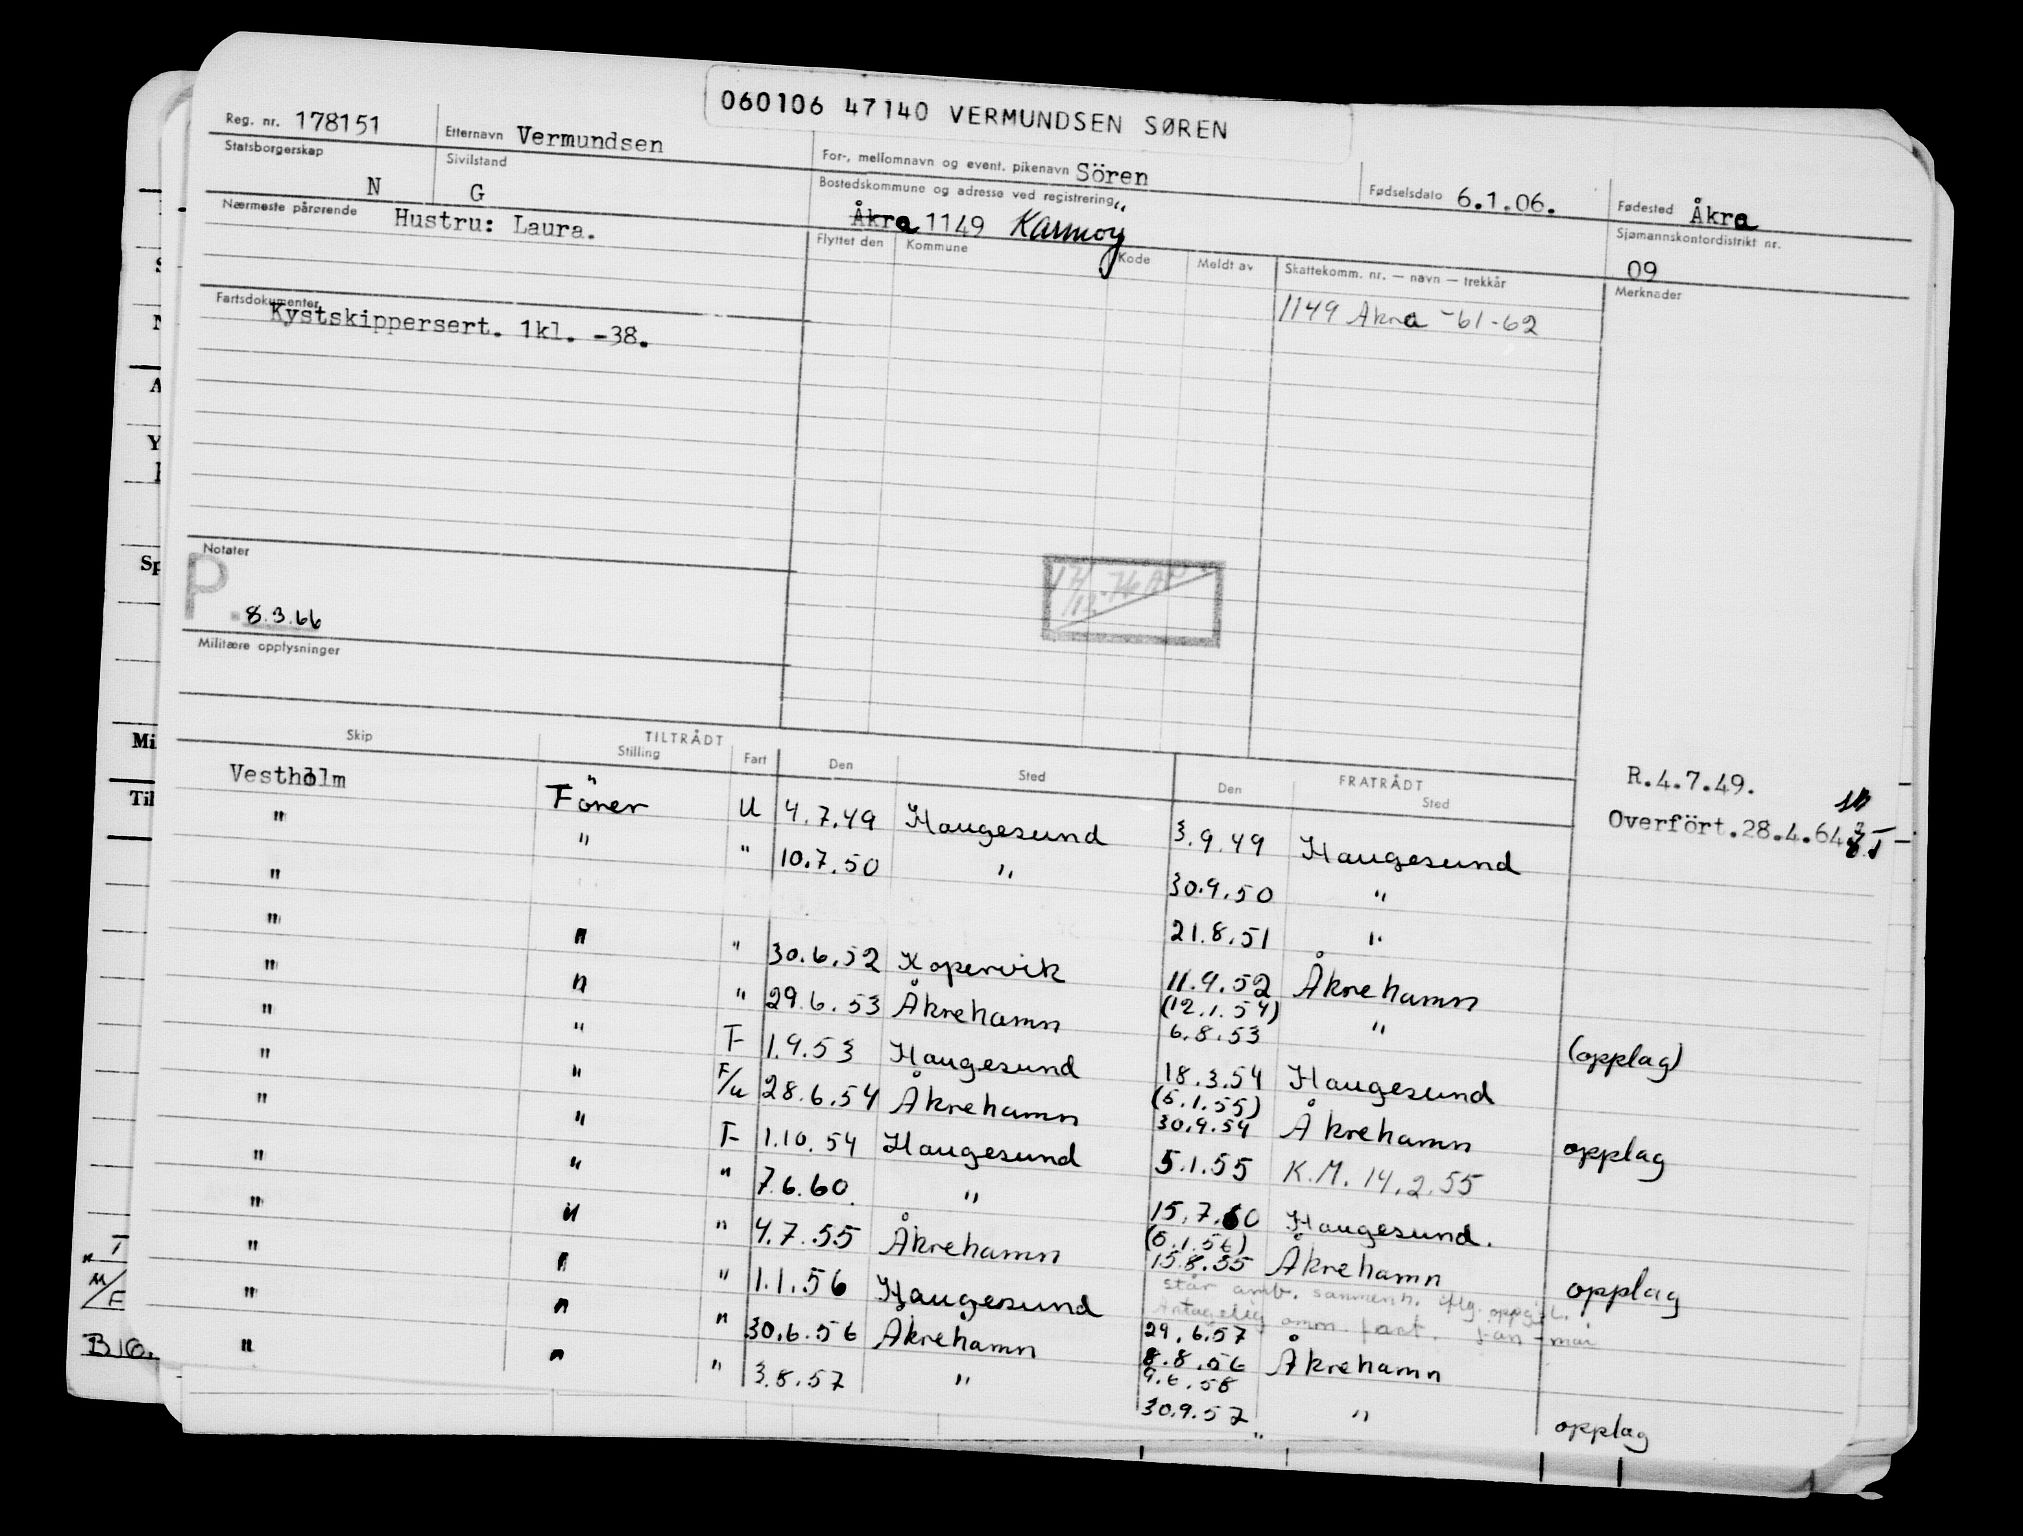 060106 47140 VERMUNDSEN SØREN
Reg. nr. 178151 Etternavn Vermundsen For-, mellomnavn og event. pikenavn Sören Fødselsdato 6.1.06. Fødested Åkra
Statsborgerskap N Sivilstand G Bostedskommune og adresse ved registrering Åkra 1149 Karmøy Sjømannskontordistrikt nr. 09
Nærmeste pårørende Hustru: Laura.
Flyttet den Kommune Kode Meldt av Skattekomm. nr. — navn — trekkår Merknader
1149 Åkra -61-62
Fartsdokumenter
Kystskippersert. 1kl. -38.
Notater
P. 8.3.66
Militære opplysninger
TILTRÅDT FRATRÅDT
Skip Stilling Fart Den Sted Den Sted
R.4.7.49.
Overfört.28.4.64
Vestholm Förer U 4.7.49 Haugesund 3.9.49 Haugesund
" " " 10.7.50 " 30.9.50 "
" 21.8.51 "
" " " 30.6.52 Kopervik 11.9.52 Åkrehamn
" " " 29.6.53 Åkrehamn (12.1.54) 6.8.53 " (opplag)
" " F 1.9.53 Haugesund 18.3.54 Haugesund
" " F/u 28.6.54 Åkrehamn (5.1.55) 30.9.54 Åkrehamn opplag
" " F 1.10.54 Haugesund 5.1.55 K.M. 14.2.55
" " " 7.6.60. " 15.7.60 Haugesund.
" " " 4.7.55 Åkrehamn (5.1.56) 15.8.55 Åkrehamn opplag
" " " 1.1.56 Haugesund står amb. sammenh. iflg. oppg.
" " " 30.6.56 Åkrehamn 29.6.57 8.8.56 Åkrehamn
" " " 3.8.57 " 9.6.58 30.9.57 " opplag